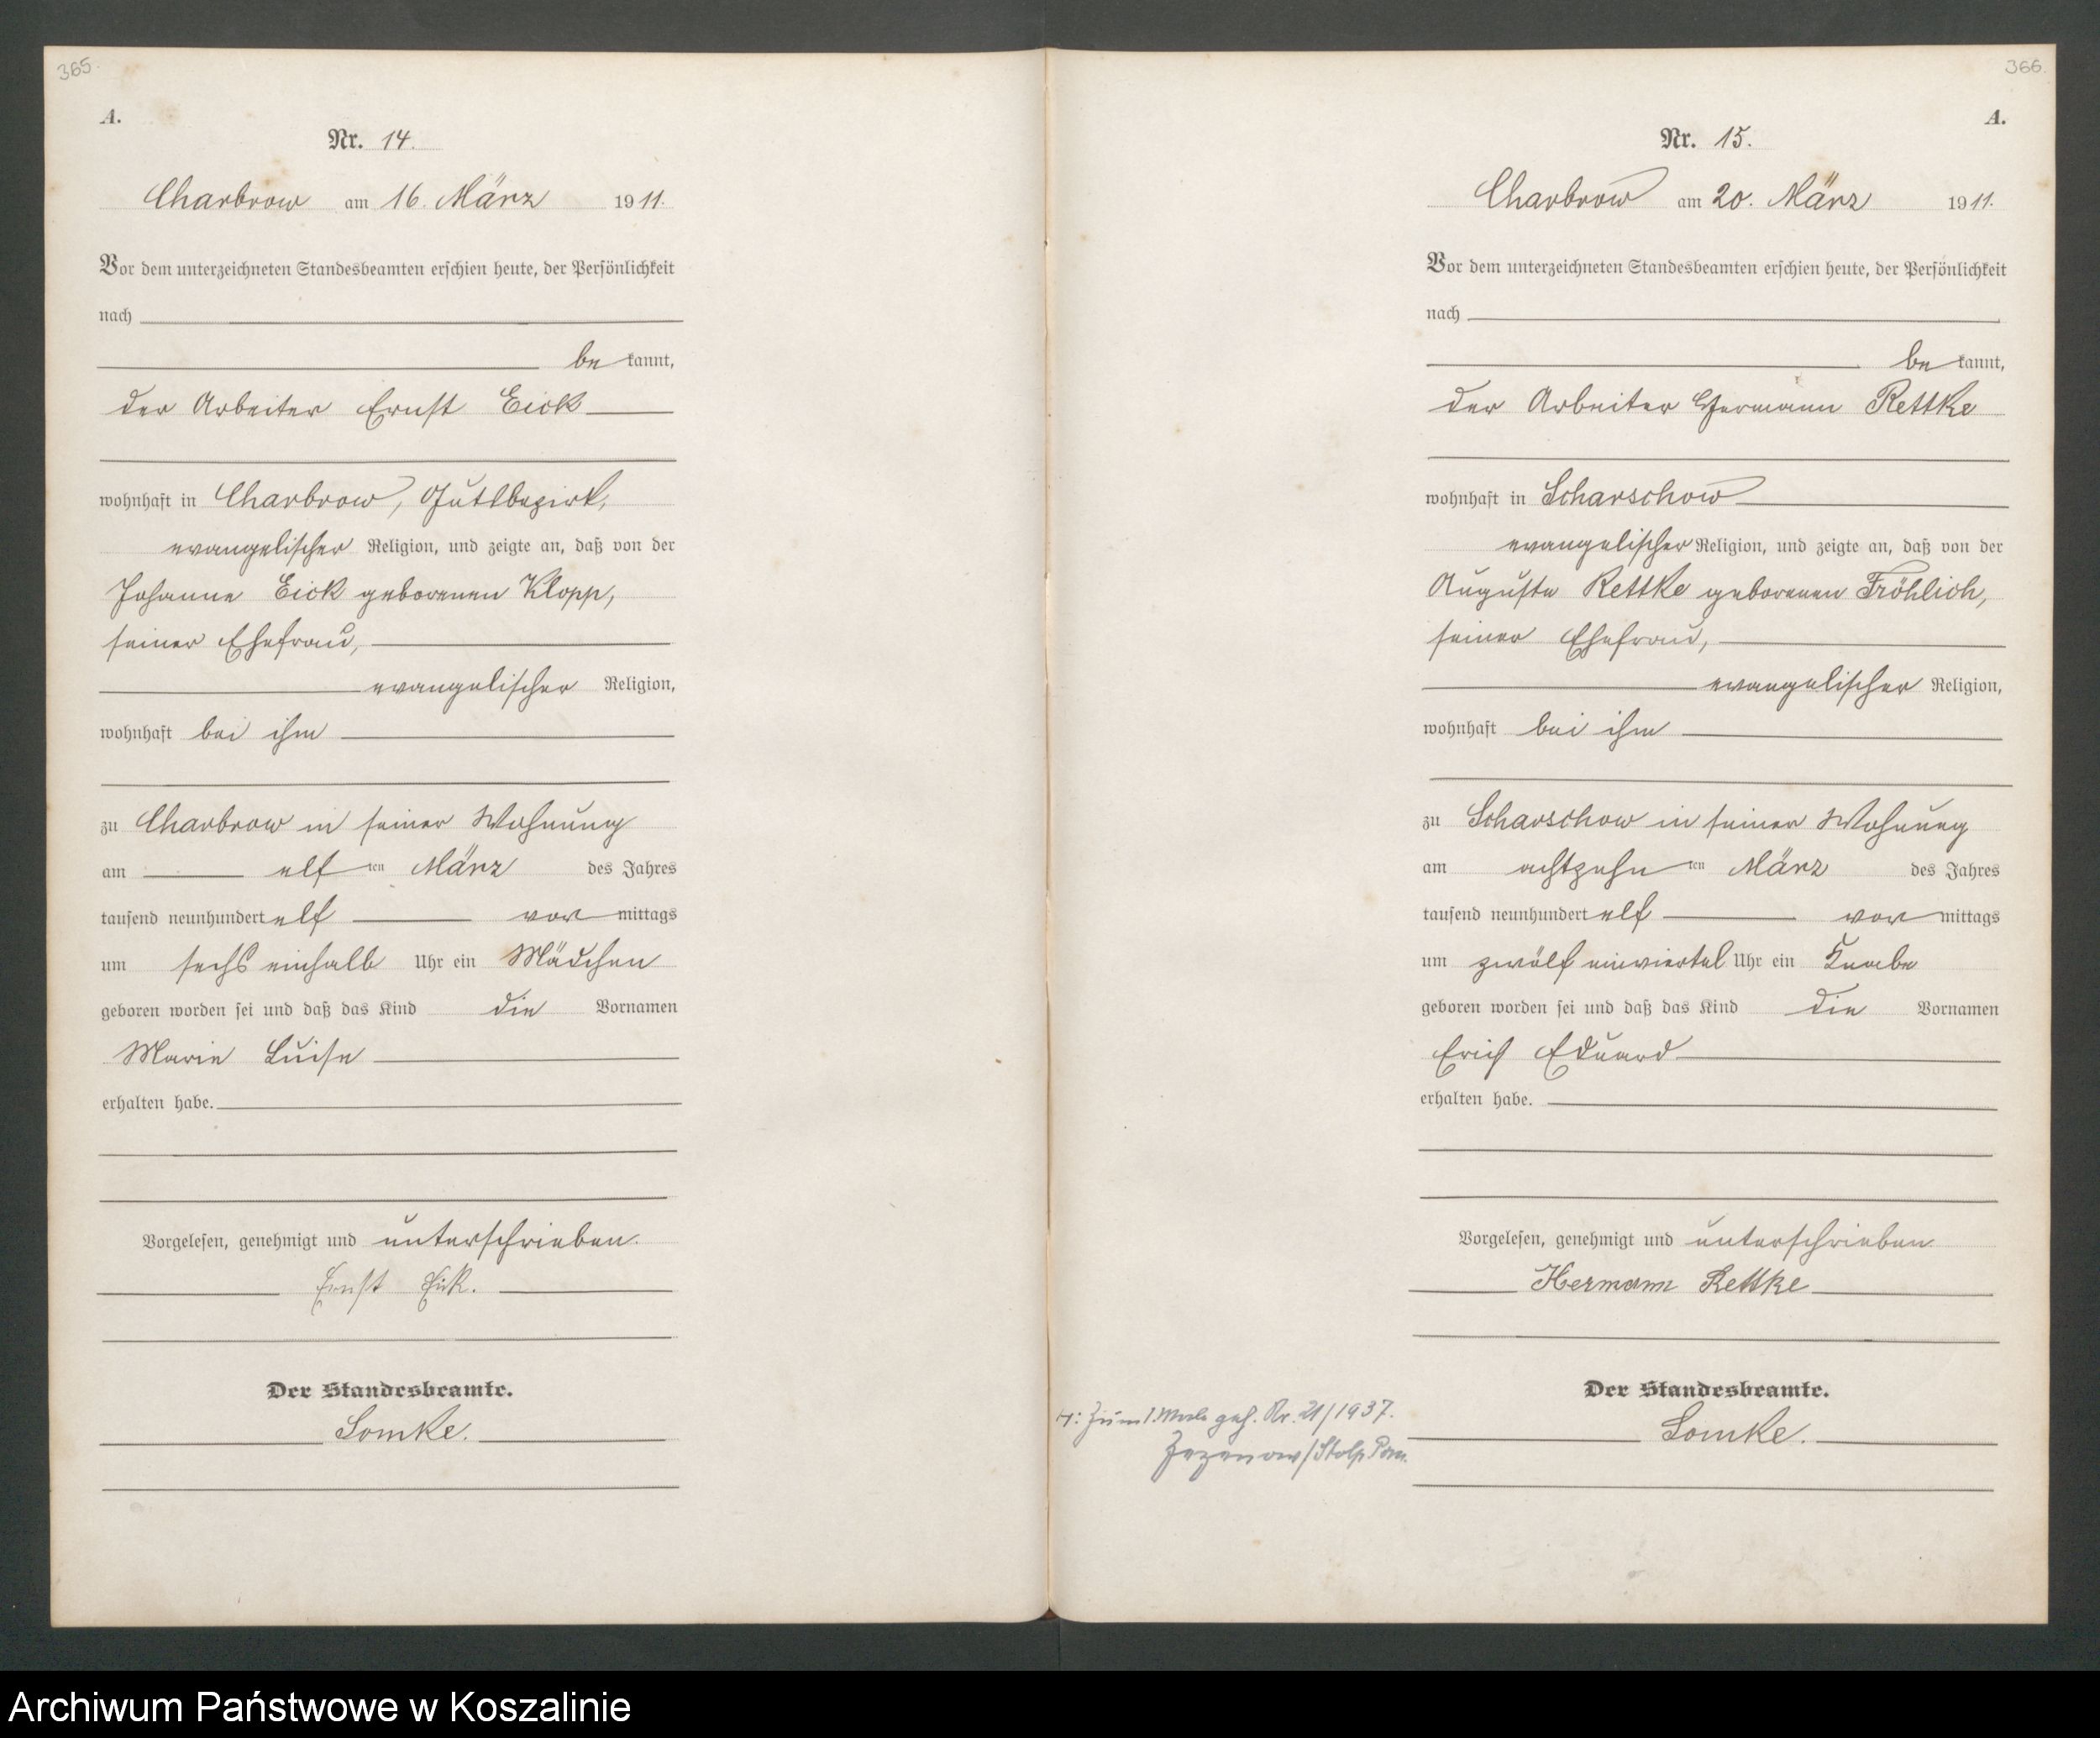 365.
A.
Nr. 14.
Charbrow am 16. März 1911.
Vor dem unterzeichneten Standesbeamten erschien heute, der Persönlichkeit
nach
be kannt,
der Arbeiter Ernst Eick
wohnhaft in Charbrow, Gutsbezirk,
evangelischer Religion, und zeigte an, daß von der
Johanne Eick geborenen Klopp,
seiner Ehefrau,
evangelischer Religion,
wohnhaft bei ihm
zu Charbrow in seiner Wohnung
am elf ten März des Jahres
tausend neunhundert elf vor mittags
um sechs einhalb Uhr ein Mädchen
geboren worden sei und daß das Kind die Vornamen
Marie Luise
erhalten habe.
Vorgelesen, genehmigt und unterschrieben.
Ernst Eick.
Der Standesbeamte.
Lomke.
366.
A.
Nr. 15.
Charbrow am 20. März 1911.
Vor dem unterzeichneten Standesbeamten erschien heute, der Persönlichkeit
nach
be kannt,
der Arbeiter Hermann Rettke
wohnhaft in Scharschow
evangelischer Religion, und zeigte an, daß von der
Auguste Rettke geborenen Fröhlich,
seiner Ehefrau,
evangelischer Religion,
wohnhaft bei ihm
zu Scharschow in seiner Wohnung
am achtzehn ten März des Jahres
tausend neunhundert elf vor mittags
um zwölf einviertel Uhr ein Knabe
geboren worden sei und daß das Kind die Vornamen
Erich Eduard
erhalten habe.
Vorgelesen, genehmigt und unterschrieben
Hermann Rettke
Der Standesbeamte.
Lomke.
H: Zum 1. Male geh. Nr. 21/1937.
Zezenow/Stolp Pom.
Archiwum Państwowe w Koszalinie